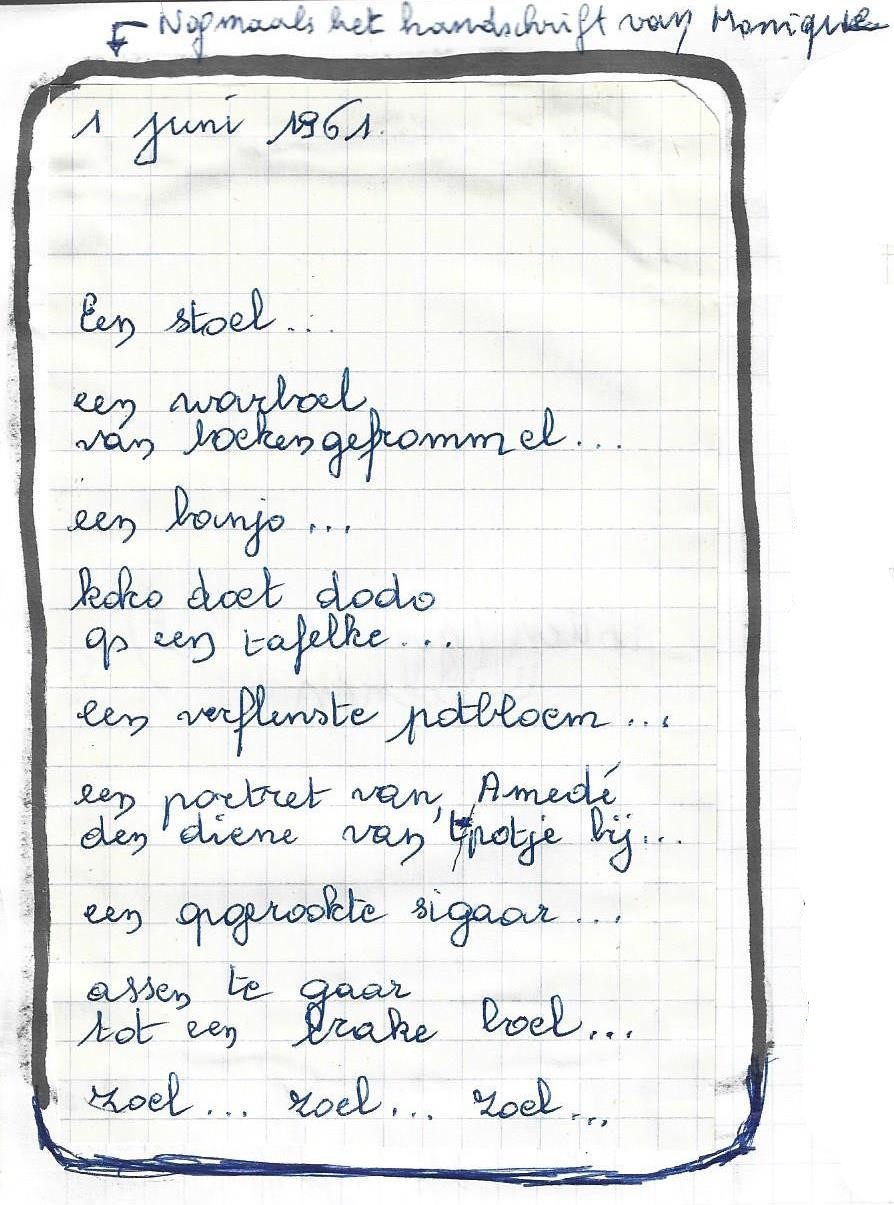 Nogmaals het handschrift van Monique
1 juni 1961.
Een stoel...
een warboel
van boekengefrommel...
een banjo...
koko doet dodo
op een tafelke...
een verflenste potbloem...
een portret van Amedé
den diene van 't potje bij...
een opgerookte sigaar...
assen te gaar
tot een brake boel...
zoel... zoel... zoel...